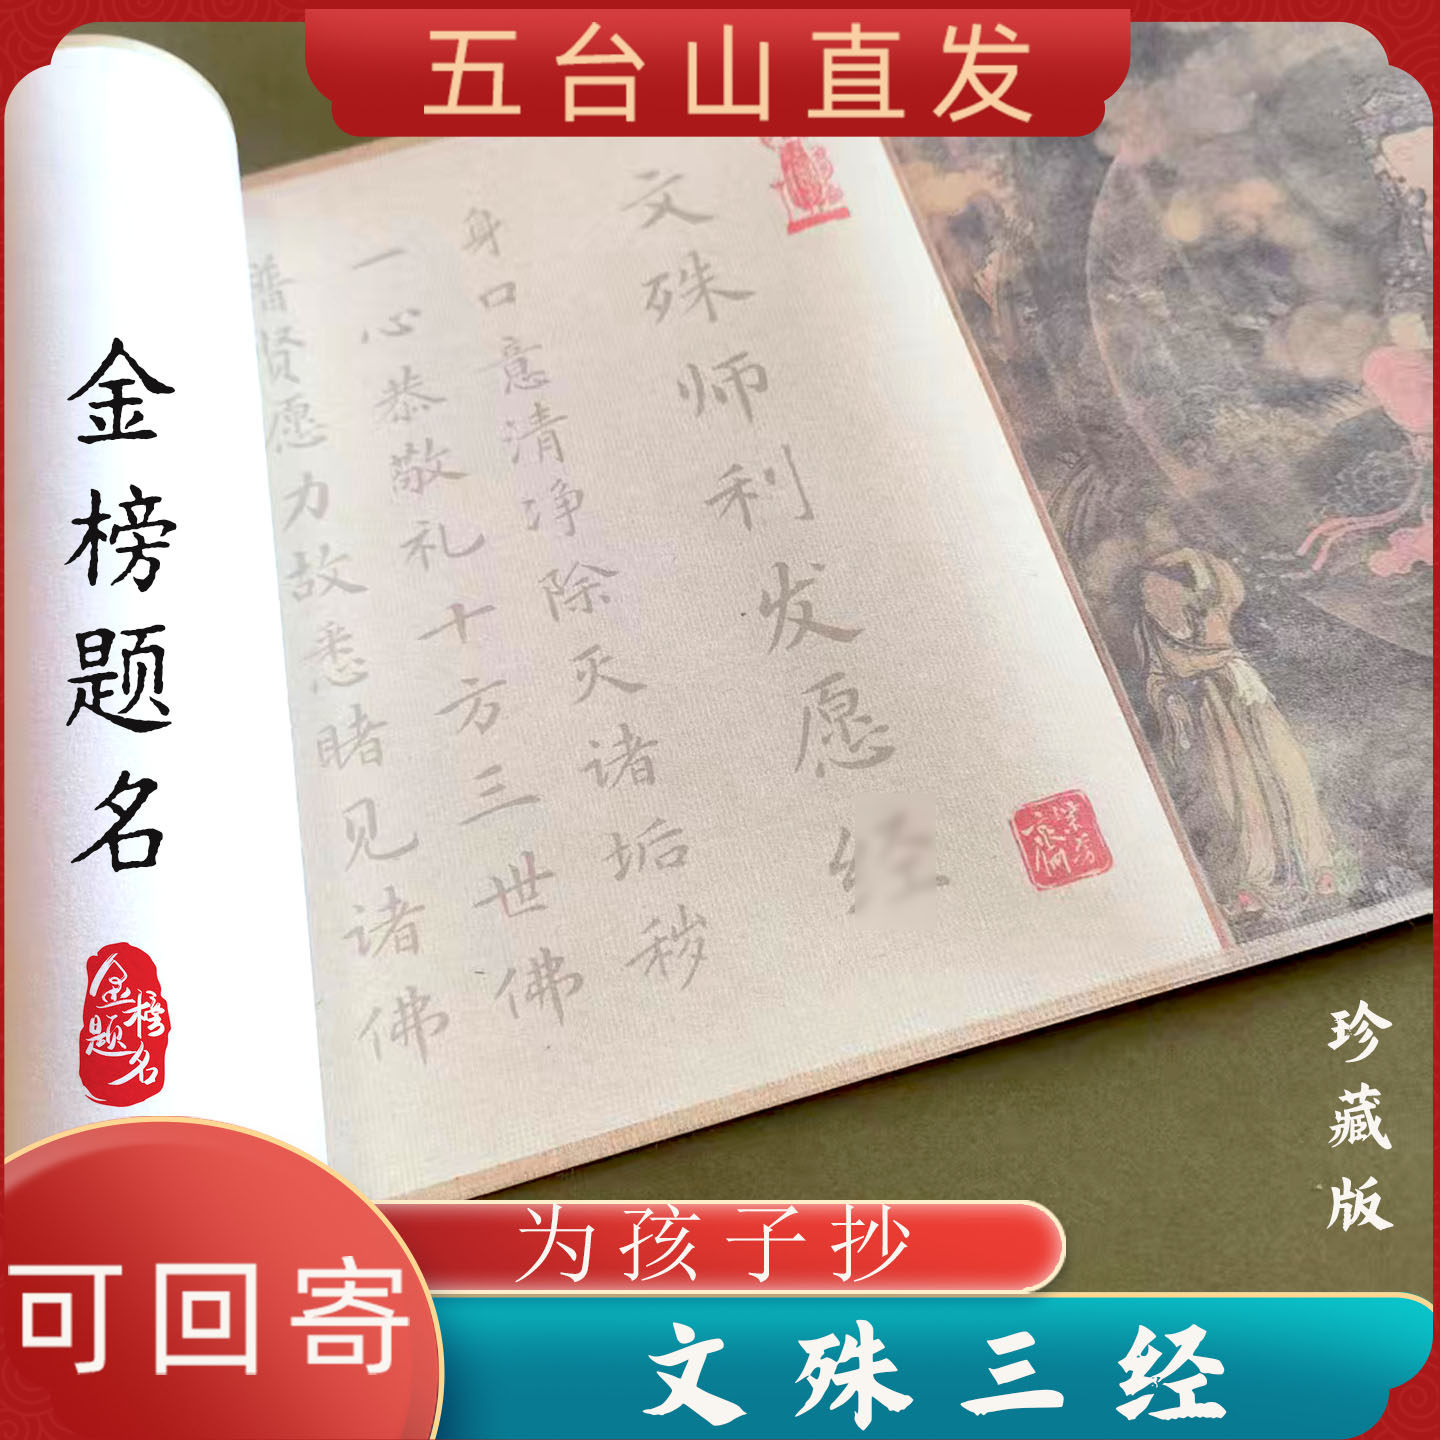 五台山直发
文殊师利发愿经
身口意清净除灭诸垢秽
一心恭敬礼十方三世佛
普贤愿力故悉睹见诸佛
金榜题名
金榜题名
珍藏版
为孩子抄
可回寄
文殊三经